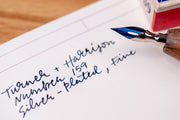 Turner + Harrison
Number 159
Silver-Plated, Fine